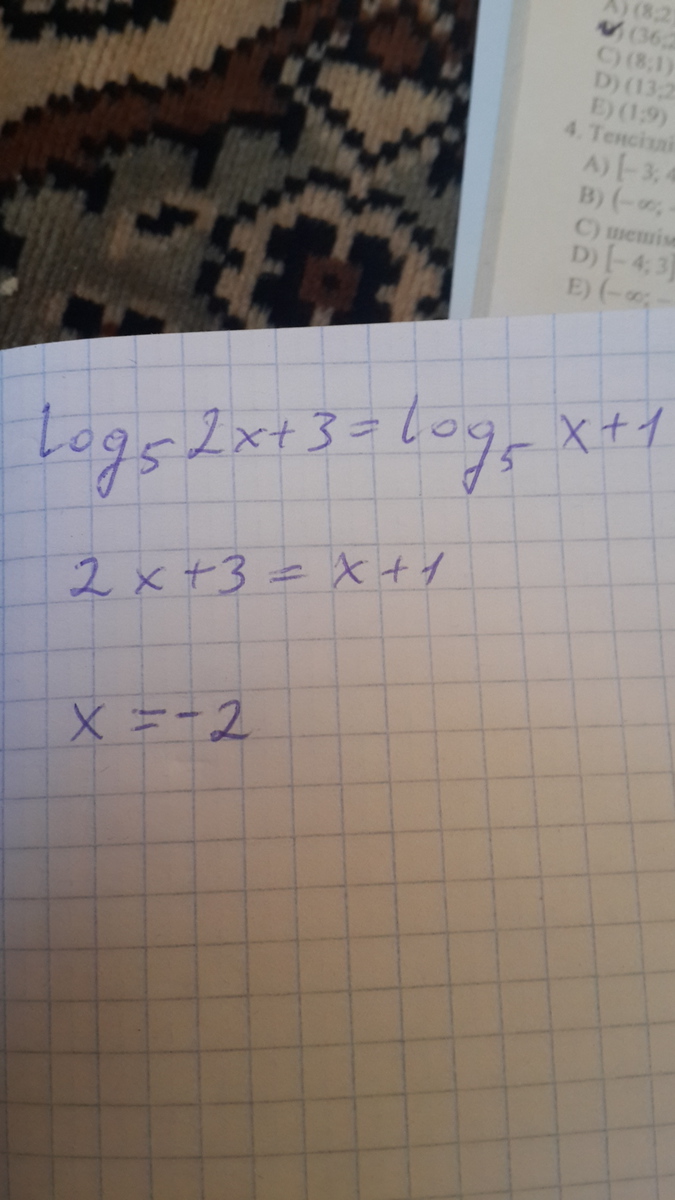 A) (8;2
(36;2
C) (8;1)
D) (13;2
E) (1;9)
4. Теңсізді
A) [-3; 4
B) (-∞; -
C) шешім
D) [-4; 3]
E) (-∞; -
log₅ 2x+3 = log₅ x+1
2x+3 = x+1
x = -2